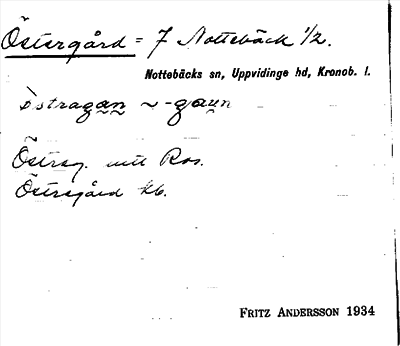 Östergård = 7 Nottebäck 1/2.
Nottebäcks sn, Uppvidinge hd, Kronob. l.
östragan ~ -gaun
Östreg. enl Ros.
Östregård kb.
FRITZ ANDERSSON 1934